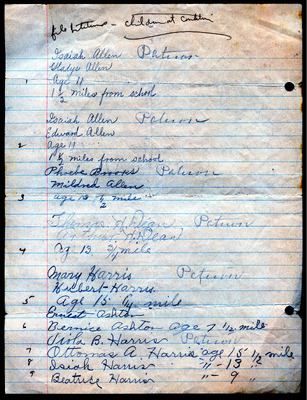 file petitions - children at
Isaiah Allen Petition
Gladys Allen
1 Age 11
1 1/2 miles from school
Isaiah Allen Petition
Edward Allen
2 Age 11
1 1/2 miles from school
Phoebe Brooks Petition
Mildred Allen
3 age 1/2 mile
Dean Petition
Dean
4 13 mile
Mary Harris Petition
Wilbert Harris
5 Age 15 mile
Ernest Ashton
6 Bernice Ashton age 7 1/2 mile
Viola B. Harris Petition
7 Ottomas A. Harris age 15 1/2 mile
8 Isiah Harris " - 13 "
9 Beatrice Harris " - 9 "